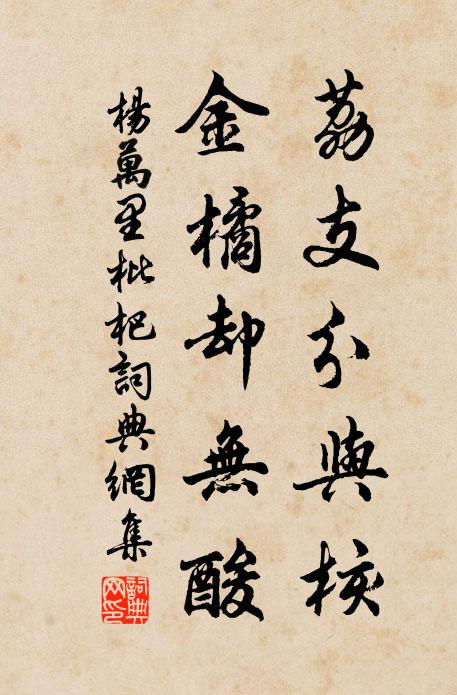 荔支分與核
金橘却無酸
楊萬里枇杷詞典網集
詞典網印